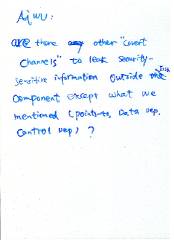 Aj Wu:
are there any other "covert
channels" to leak security-
sensitive information outside the
component except what we
mentioned (pointers, Data dep,
control dep) ?